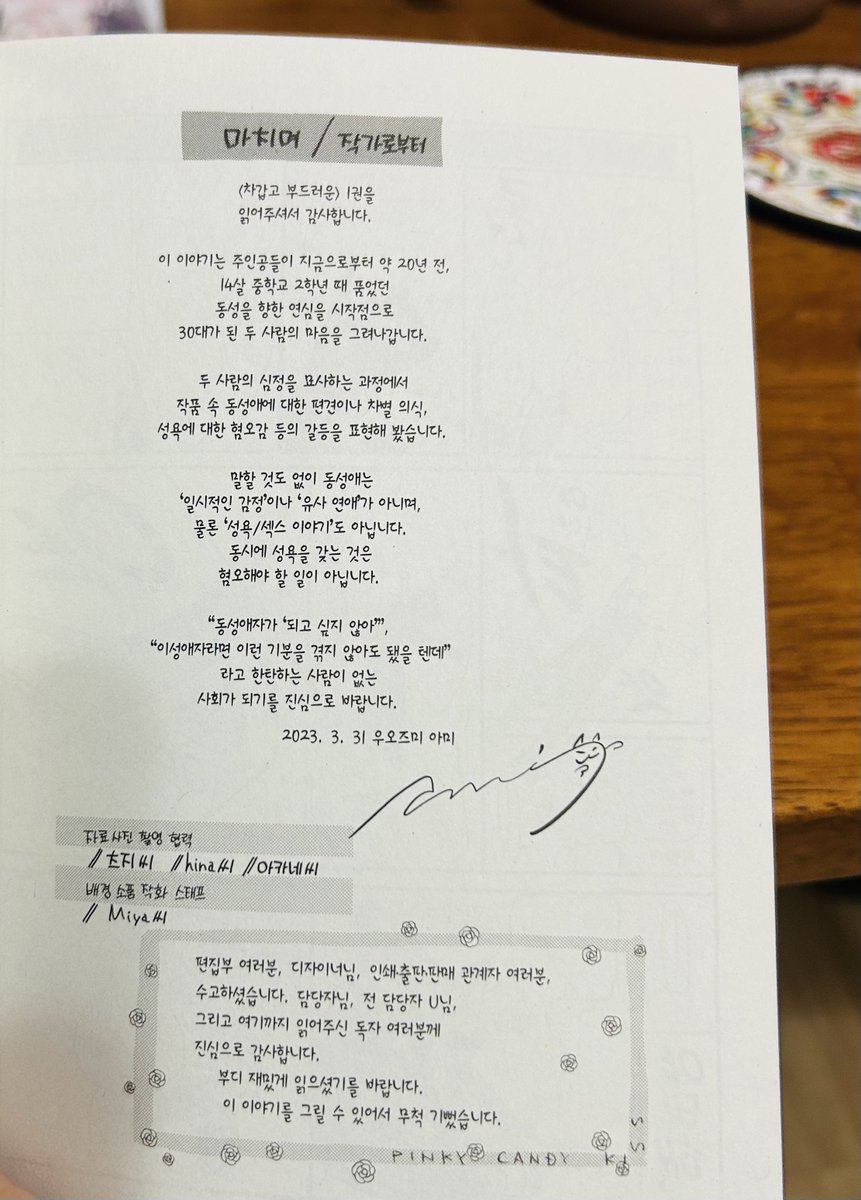 마치며 / 작가로부터
〈차갑고 부드러운〉 1권을
읽어주셔서 감사합니다.
이 이야기는 주인공들이 지금으로부터 약 20년 전,
14살 중학교 2학년 때 품었던
동성을 향한 연심을 시작점으로
30대가 된 두 사람의 마음을 그려나갑니다.
두 사람의 심정을 묘사하는 과정에서
작품 속 동성애에 대한 편견이나 차별 의식,
성욕에 대한 혐오감 등의 갈등을 표현해 봤습니다.
말할 것도 없이 동성애는
‘일시적인 감정’이나 ‘유사 연애’가 아니며,
물론 ‘성욕/섹스 이야기’도 아닙니다.
동시에 성욕을 갖는 것은
혐오해야 할 일이 아닙니다.
“동성애자가 ‘되고 싶지 않아’”,
“이성애자라면 이런 기분을 겪지 않아도 됐을 텐데”
라고 한탄하는 사람이 없는
사회가 되기를 진심으로 바랍니다.
2023. 3. 31 우오즈미 아미
Ami
자료 사진 촬영 협력
//츠지씨 //hina씨 //아카네씨
배경 소품 작화 스태프
// Miya씨
편집부 여러분, 디자이너님, 인쇄·출판·판매 관계자 여러분,
수고하셨습니다. 담당자님, 전 담당자 U님,
그리고 여기까지 읽어주신 독자 여러분께
진심으로 감사합니다.
부디 재밌게 읽으셨기를 바랍니다.
이 이야기를 그릴 수 있어서 무척 기뻤습니다.
PINKY CANDY KISS